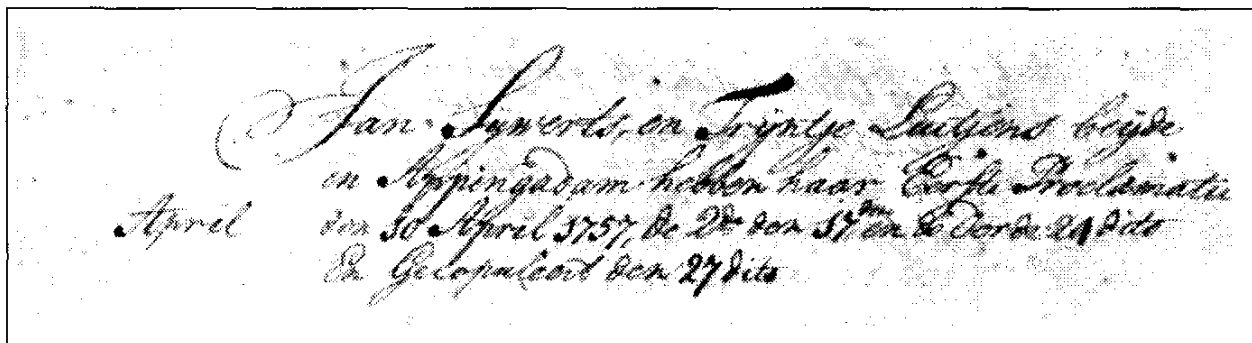 Jan Sijwerts, en Trijntje Luitjens beijde
en Appingadam hebben haar Eerste Proclamatie
April den 10 April 1757, de 2de den 17den en de derde 24 dito
En Gecopuleert den 27 dito